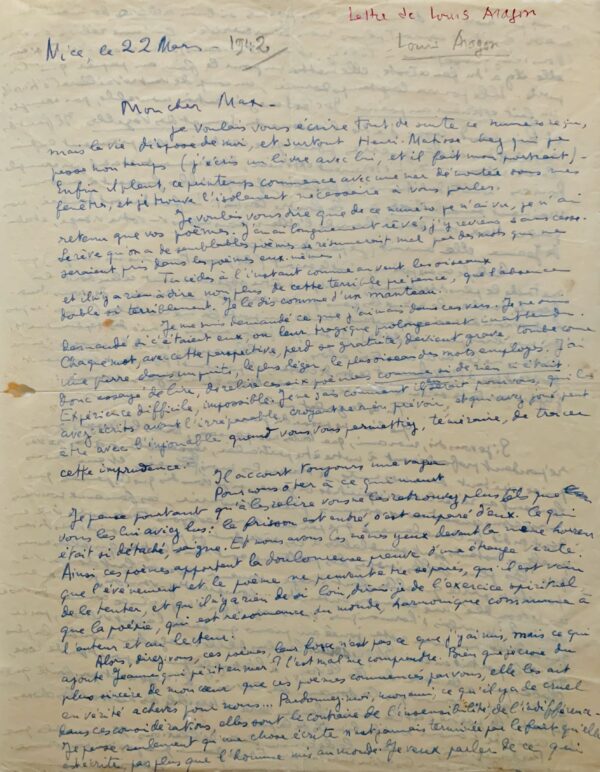 Lettre de Louis Aragon
Louis Aragon
Nice, le 22 Mars - 1942
Mon cher Max -
Je voulais vous écrire tout de suite ce numéro reçu,
mais la vie dispose de moi, et surtout Henri-Matisse chez qui je
passe mon temps (j'écris un livre avec lui, et il fait mon portrait) -
Enfin il pleut, ce printemps commence avec une mer démontée sous mes
fenêtres, et je trouve l'isolement nécessaire à vous parler.
Je voulais vous dire que de ce numéro je n'ai vu, je n'ai
retenu que vos poèmes. J'en ai longuement rêvé, j'y reviens sans cesse.
Le rêve qu'on a de semblables poèmes se résumerait mal par des mots qui ne
seraient pris dans les poèmes eux-mêmes:
Tu cèdes à l'instant comme au vent les oiseaux
et il n'y a rien à dire non plus de cette terrible présence, que l'absence
double si terriblement. Je le dis comme d'un manteau.
Je me suis demandé ce que j'aimais dans ces vers. Je me suis
demandé si c'étaient eux, ou leur tragique prolongement inattendu.
Chaque mot, avec cette perspective, perd sa gratuité, devient grave, tombe comme
une pierre dans un puits, le plus léger, le plus oiseau des mots employés. J'ai
donc essayé de lire, de relire ces six poèmes comme si de rien n'était.
Expérience difficile, impossible. Je ne sais comment il serait pour vous, qui les
avez écrits avant l'irréparable, croyant ne rien prévoir, et qui avez joué peut
être avec l'informulable quand vous vous permettiez, téméraire, de tracer
cette imprudence:
Il accourt toujours une vague
Pour nous ôter à ce qui ment
Je pense pourtant qu'à les relire vous ne les retrouvez plus tels que
vous les lui aviez lus: le frisson est entré s'est emparé d'eux. Ce qui
était si détaché, saigne. Et nous avons les mêmes yeux devant la même horreur
Ainsi ces poèmes apportent la douloureuse preuve d'une étrange vérité:
que l'événement et le poème ne peuvent être séparés, qu'il est vain
de le tenter, et qu'il n'y a rien de si loin, dirais-je de l'exercice spirituel
que la poésie, qui est résonnance du monde, harmonique commune à
l'auteur et au lecteur.
Alors, direz-vous, ces poèmes, leur force n'est pas ce que j'y ai mis, mais ce qui
ajoute Jeanne qui périt en mer? C'est mal me comprendre. Bien que je croie du
plus sincère de mon cœur que ces poèmes commencés par vous, elle les ait
en vérité achevés pour nous... Pardonnez-moi, mon ami, ce qu'il y a de cruel
dans ces considérations, elles sont le contraire de l'insensibilité de l'indifférence -
Je pense seulement qu'une chose écrite n'est jamais terminée par le fait qu'elle
est écrite, pas plus que l'homme mis au monde. Je veux parler de ce qui